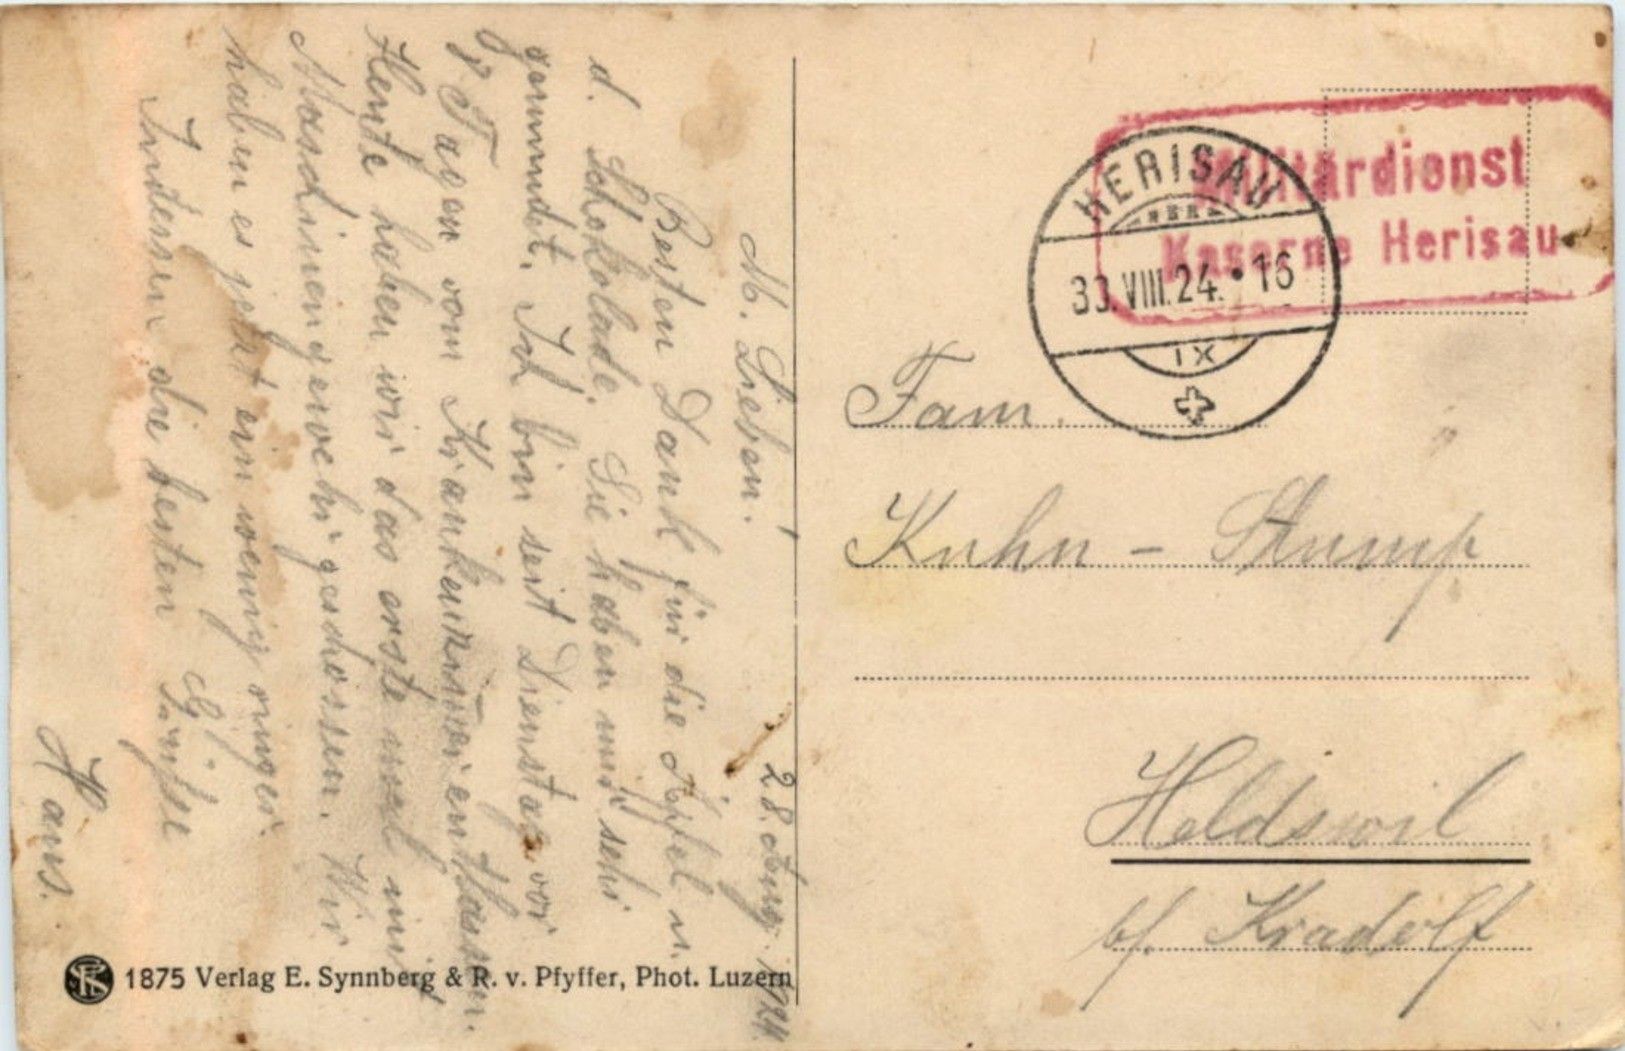 28. Aug. 1924.
M. Lieben!
Besten Dank für die Äpfel u.
d. Schokolade. Sie haben mir sehr
gemundet. Ich bin seit Dienstag vor
8 Tagen vom Krankenzimmer entlassen.
Heute haben wir das erste mal mit
Maschinengewehr geschossen. Wir
haben es jetzt ein wenig ringer.
Indessen die besten Grüsse
Hans.
Militärdienst
Kaserne Herisau
HERISAU
30.VIII.24.•16
IX
Fam.
Kuhn - Stump
Heldswil
b/. Kradolf
1875 Verlag E. Synnberg & R. v. Pfyffer, Phot. Luzern